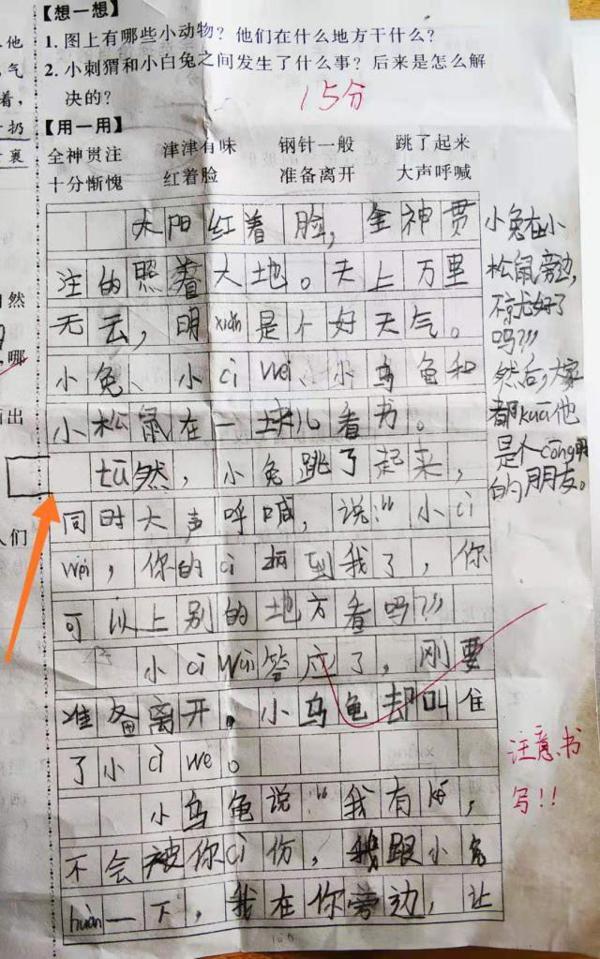 【想一想】
1. 图上有哪些小动物？他们在什么地方干什么？
2. 小刺猬和小白兔之间发生了什么事？后来是怎么解
决的？
15分
【用一用】
全神贯注 津津有味 钢针一般 跳了起来
十分惭愧 红着脸 准备离开 大声呼喊
太阳红着脸，全神贯
注的照着大地。天上万里
无云，明xiǎn是个好天气。
小兔、小cì wei、小乌龟和
小松鼠在一块儿看书。
tū然，小兔跳了起来，
同时大声呼喊，说：“小cì
wei，你的cì 到我了，你
可以上别的地方看吗？”
小cì wei答应了，刚要
准备离开。小乌龟却叫住
了小cì we。
小乌龟说：“我有 ，
不会被你cì伤，我跟小兔
huàn一下，我在你旁边，让
小兔在小
松鼠旁边，
不就好了
吗？”
然后，大家
都kuā他
是个cōng明
的朋友。
注意书
写！！
他
气
着，
扔
裹
然
哪
出
人们